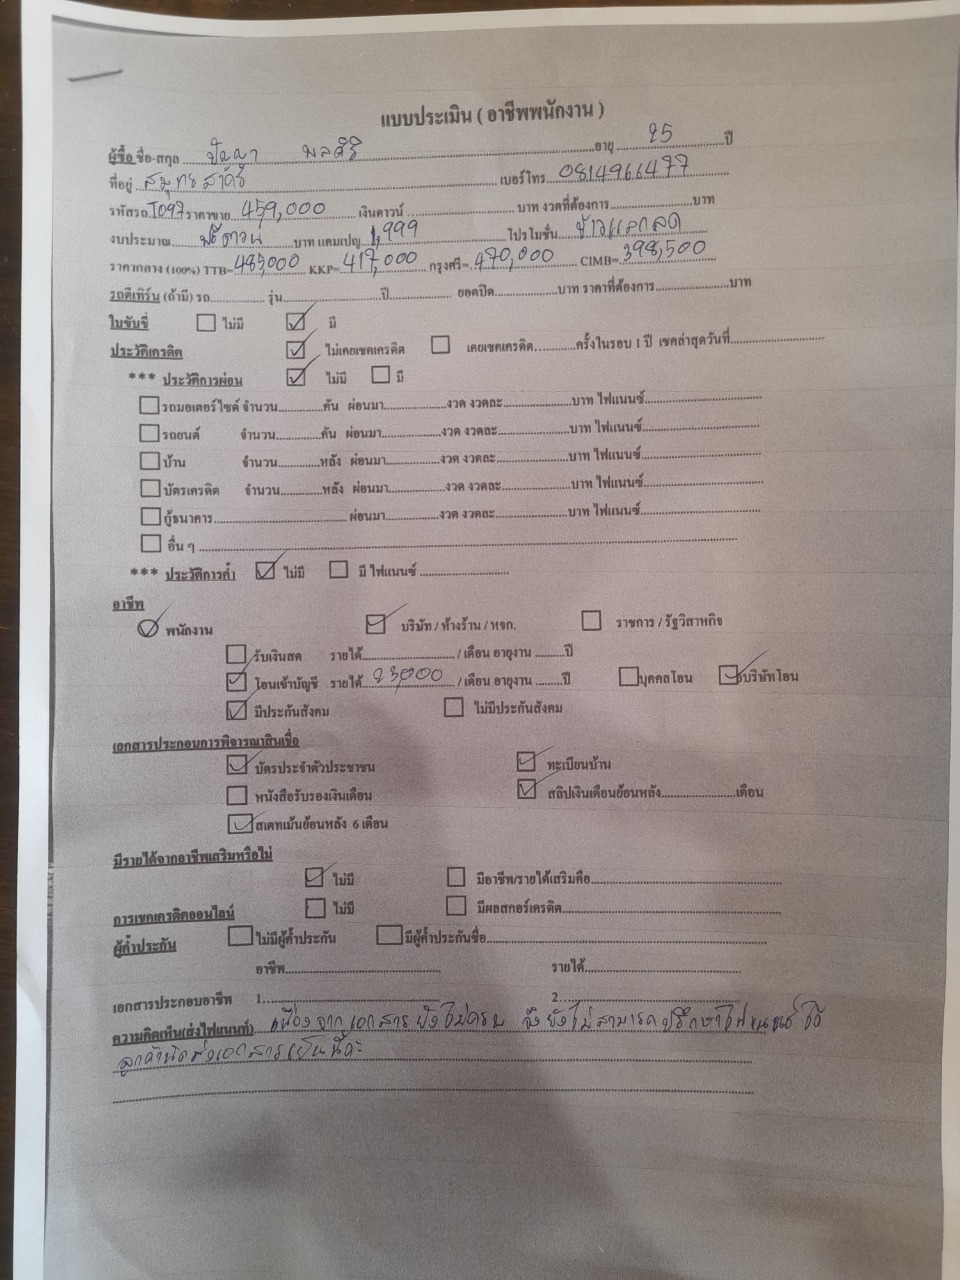 แบบประเมิน ( อาชีพพนักงาน )
ผู้ซื้อ ชื่อ-สกุล ปัญญา พลศิริ อายุ 25 ปี
ที่อยู่ สมุทรสาคร เบอร์โทร 0814966477
รหัสรถ T097 ราคาขาย 459,000 เงินดาวน์ บาท งวดที่ต้องการ บาท
งบประมาณ ฟรีดาวน์ บาท แคมเปญ 1,999 โปรโมชั่น ข้าวแลกลด
ราคากลาง (100%) TTB= 485,000 KKP= 417,000 กรุงศรี= 470,000 CIMB= 398,500
รถตีเทิร์น (ถ้ามี) รถ รุ่น ปี ยอดปิด บาท ราคาที่ต้องการ บาท
ใบขับขี่ ไม่มี มี
ประวัติเครดิต ไม่เคยเชคเครดิต เคยเชคเครดิต ครั้งในรอบ 1 ปี เชคล่าสุดวันที่
*** ประวัติการผ่อน ไม่มี มี
รถมอเตอร์ไซค์ จำนวน คัน ผ่อนมา งวด งวดละ บาท ไฟแนนซ์
รถยนต์ จำนวน คัน ผ่อนมา งวด งวดละ บาท ไฟแนนซ์
บ้าน จำนวน หลัง ผ่อนมา งวด งวดละ บาท ไฟแนนซ์
บัตรเครดิต จำนวน หลัง ผ่อนมา งวด งวดละ บาท ไฟแนนซ์
กู้ธนาคาร ผ่อนมา งวด งวดละ บาท ไฟแนนซ์
อื่น ๆ
*** ประวัติการค้ำ ไม่มี มี ไฟแนนซ์
อาชีพ
พนักงาน บริษัท / ห้างร้าน / หจก. ราชการ / รัฐวิสาหกิจ
รับเงินสด รายได้ / เดือน อายุงาน ปี
โอนเข้าบัญชี รายได้ 23,000 / เดือน อายุงาน ปี บุคคลโอน บริษัทโอน
มีประกันสังคม ไม่มีประกันสังคม
เอกสารประกอบการพิจารณาสินเชื่อ
บัตรประจำตัวประชาชน ทะเบียนบ้าน
หนังสือรับรองเงินเดือน สลิปเงินเดือนย้อนหลัง เดือน
สเตทเม้นย้อนหลัง 6 เดือน
มีรายได้จากอาชีพเสริมหรือไม่
ไม่มี มีอาชีพ/รายได้เสริมคือ
การเชคเครดิตออนไลน์ ไม่มี มีผลสกอร์เครดิต
ผู้ค้ำประกัน ไม่มีผู้ค้ำประกัน มีผู้ค้ำประกันชื่อ
อาชีพ รายได้
เอกสารประกอบอาชีพ 1 2
ความคิดเห็น(ส่งไฟแนนท์) เนื่องจากเอกสารยังไม่ครบ จึงยังไม่สามารถปรึกษาไฟแนนซ์ได้
ลูกค้านัดส่งเอกสารเย็นนี้ค่ะ